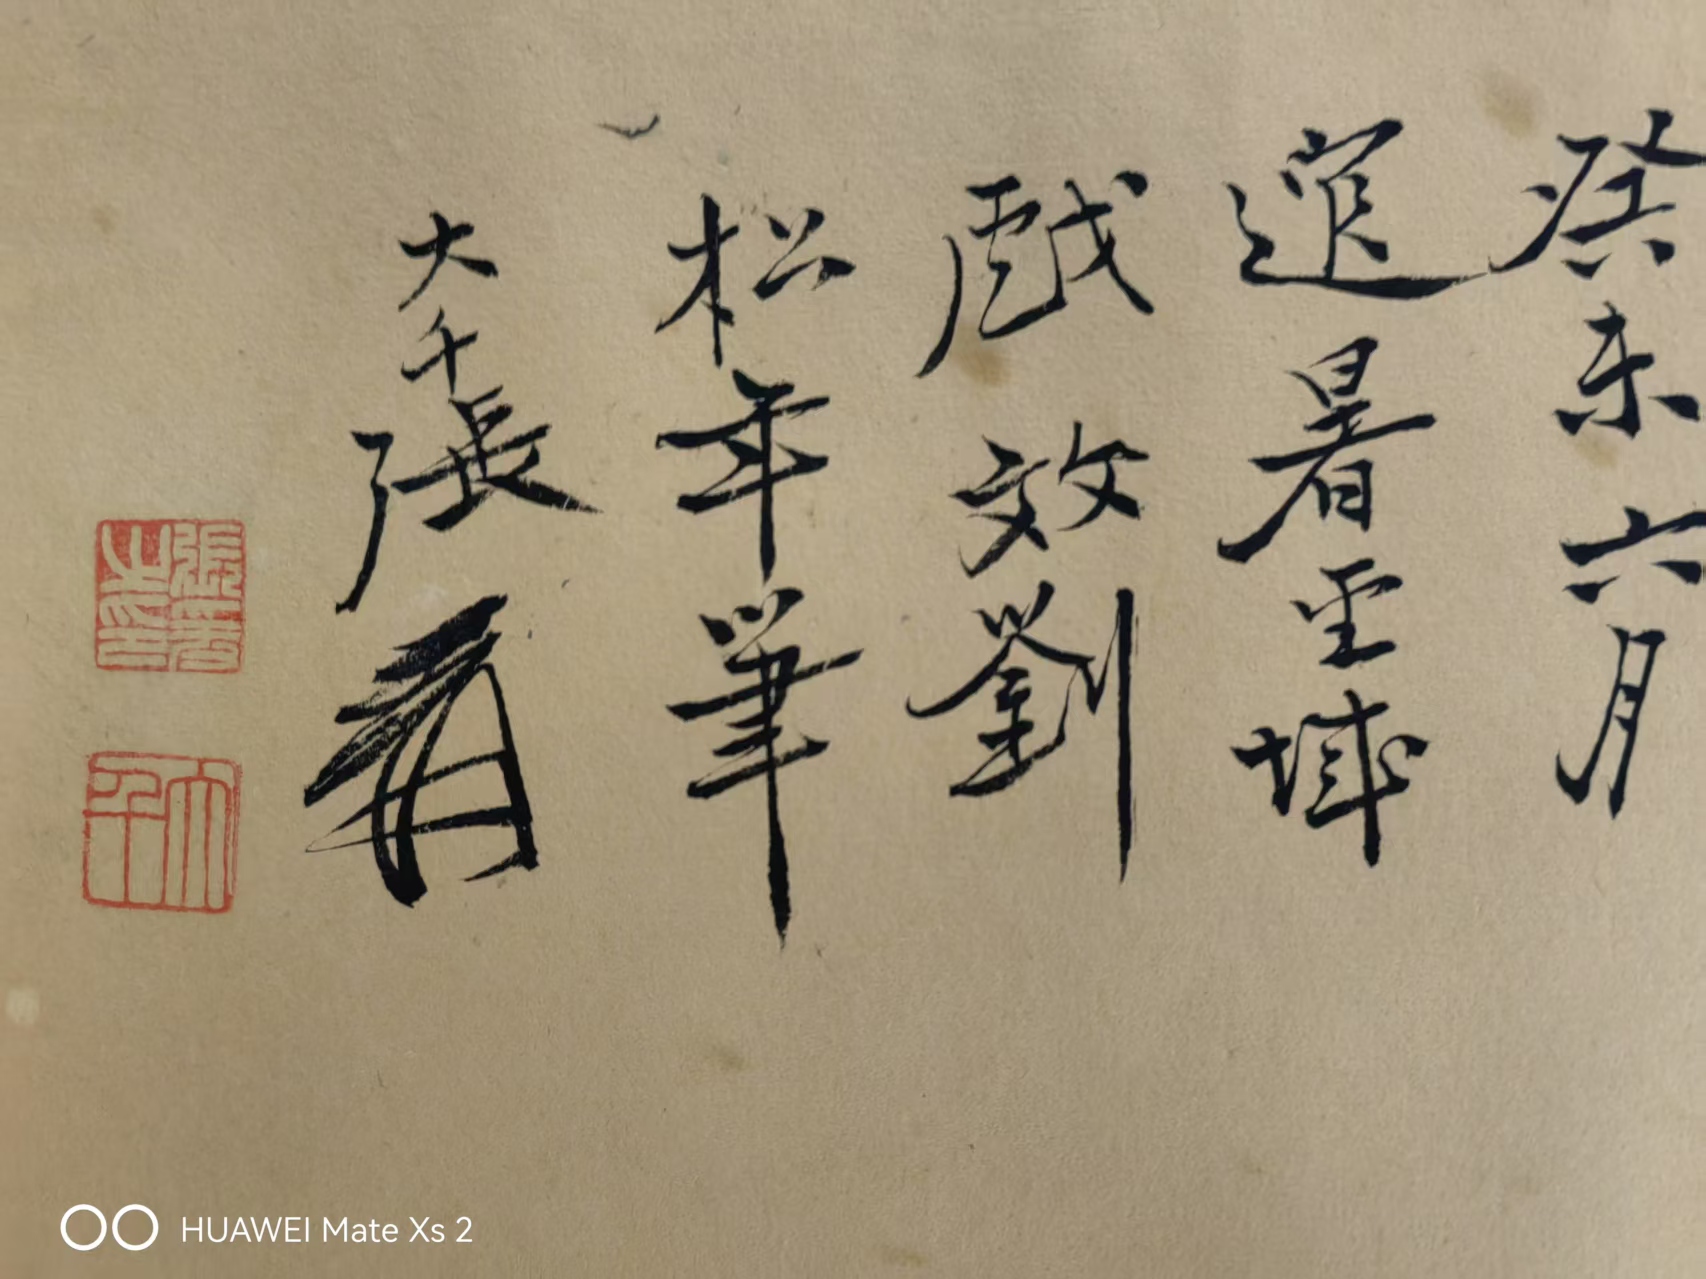 癸未六月
避暑靑城
戲效劉
松年筆
大千張爰
張爰之印
大千
HUAWEI Mate Xs 2